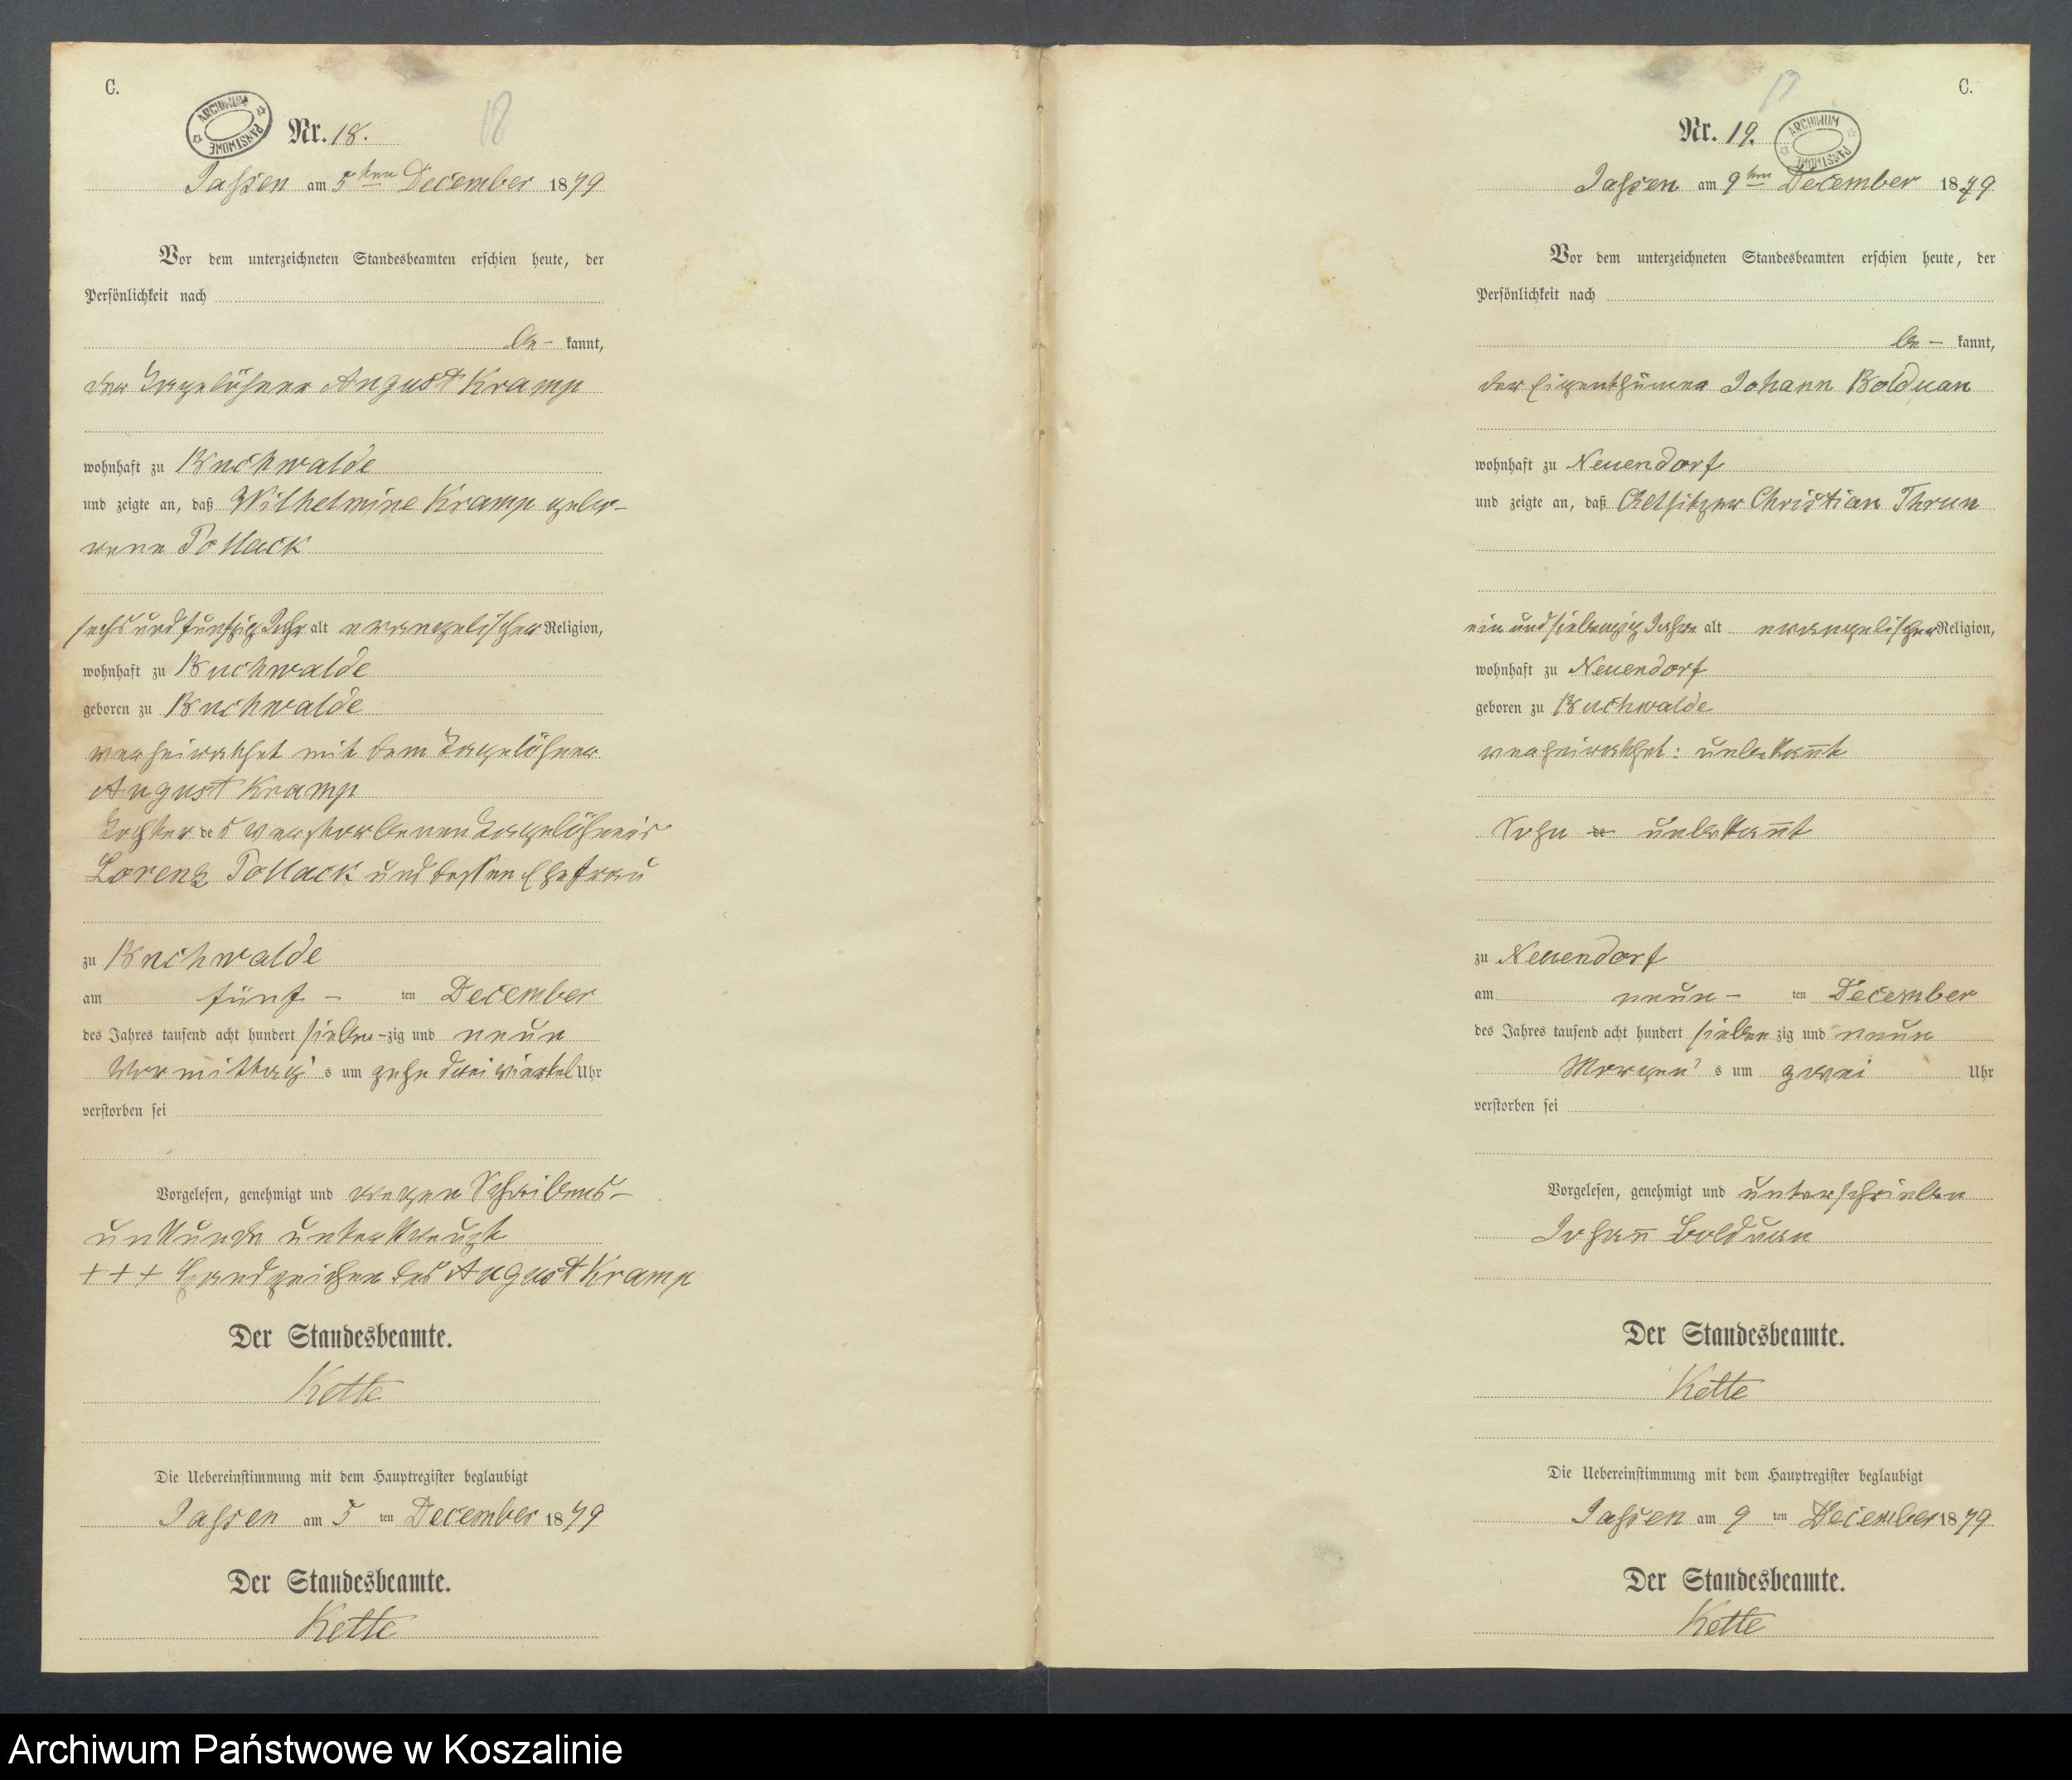 C.
ARCHIWUM PAŃSTWOWE
Nr. 18.
18
Jassen am 5ten December 1879
Vor dem unterzeichneten Standesbeamten erschien heute, der
Persönlichkeit nach
be- kannt,
der Tagelöhner August Kramp
wohnhaft zu Buchwalde
und zeigte an, daß Wilhelmine Kramp gebo-
rene Pollack
sechs und funfzig Jahr alt evangelischer Religion,
wohnhaft zu Buchwalde
geboren zu Buchwalde
verheirathet mit dem Tagelöhner
August Kramp
Tochter des verstorbenen Tagelöhners
Lorenz Pollack und dessen Ehefrau
zu Buchwalde
am fünf - ten December
des Jahres tausend acht hundert sieben-zig und neun
Vormittag's um zehn dreiviertel Uhr
verstorben sei
Vorgelesen, genehmigt und wegen Schreibens-
unkunde unterkreuzt
+++ Handzeichen des August Kramp
Der Standesbeamte.
Kette
Die Uebereinstimmung mit dem Hauptregister beglaubigt
Jassen am 5 ten December 1879
Der Standesbeamte.
Kette
C.
17
Nr. 19.
ARCHIWUM PAŃSTWOWE
Jassen am 9ten December 1879
Vor dem unterzeichneten Standesbeamten erschien heute, der
Persönlichkeit nach
be- kannt,
der Eigenthümer Johann Bolduan
wohnhaft zu Neuendorf
und zeigte an, daß Altsitzer Christian Thrun
ein und siebenzig Jahre alt evangelischer Religion,
wohnhaft zu Neuendorf
geboren zu Buchwalde
verheirathet: unbekannt
Sohn de unbekannt
zu Neuendorf
am neun - ten December
des Jahres tausend acht hundert sieben zig und neun
Morgen's um zwei Uhr
verstorben sei
Vorgelesen, genehmigt und unterschrieben
Johann Bolduan
Der Standesbeamte.
Kette
Die Uebereinstimmung mit dem Hauptregister beglaubigt
Jassen am 9 ten December 1879
Der Standesbeamte.
Kette
Archiwum Państwowe w Koszalinie